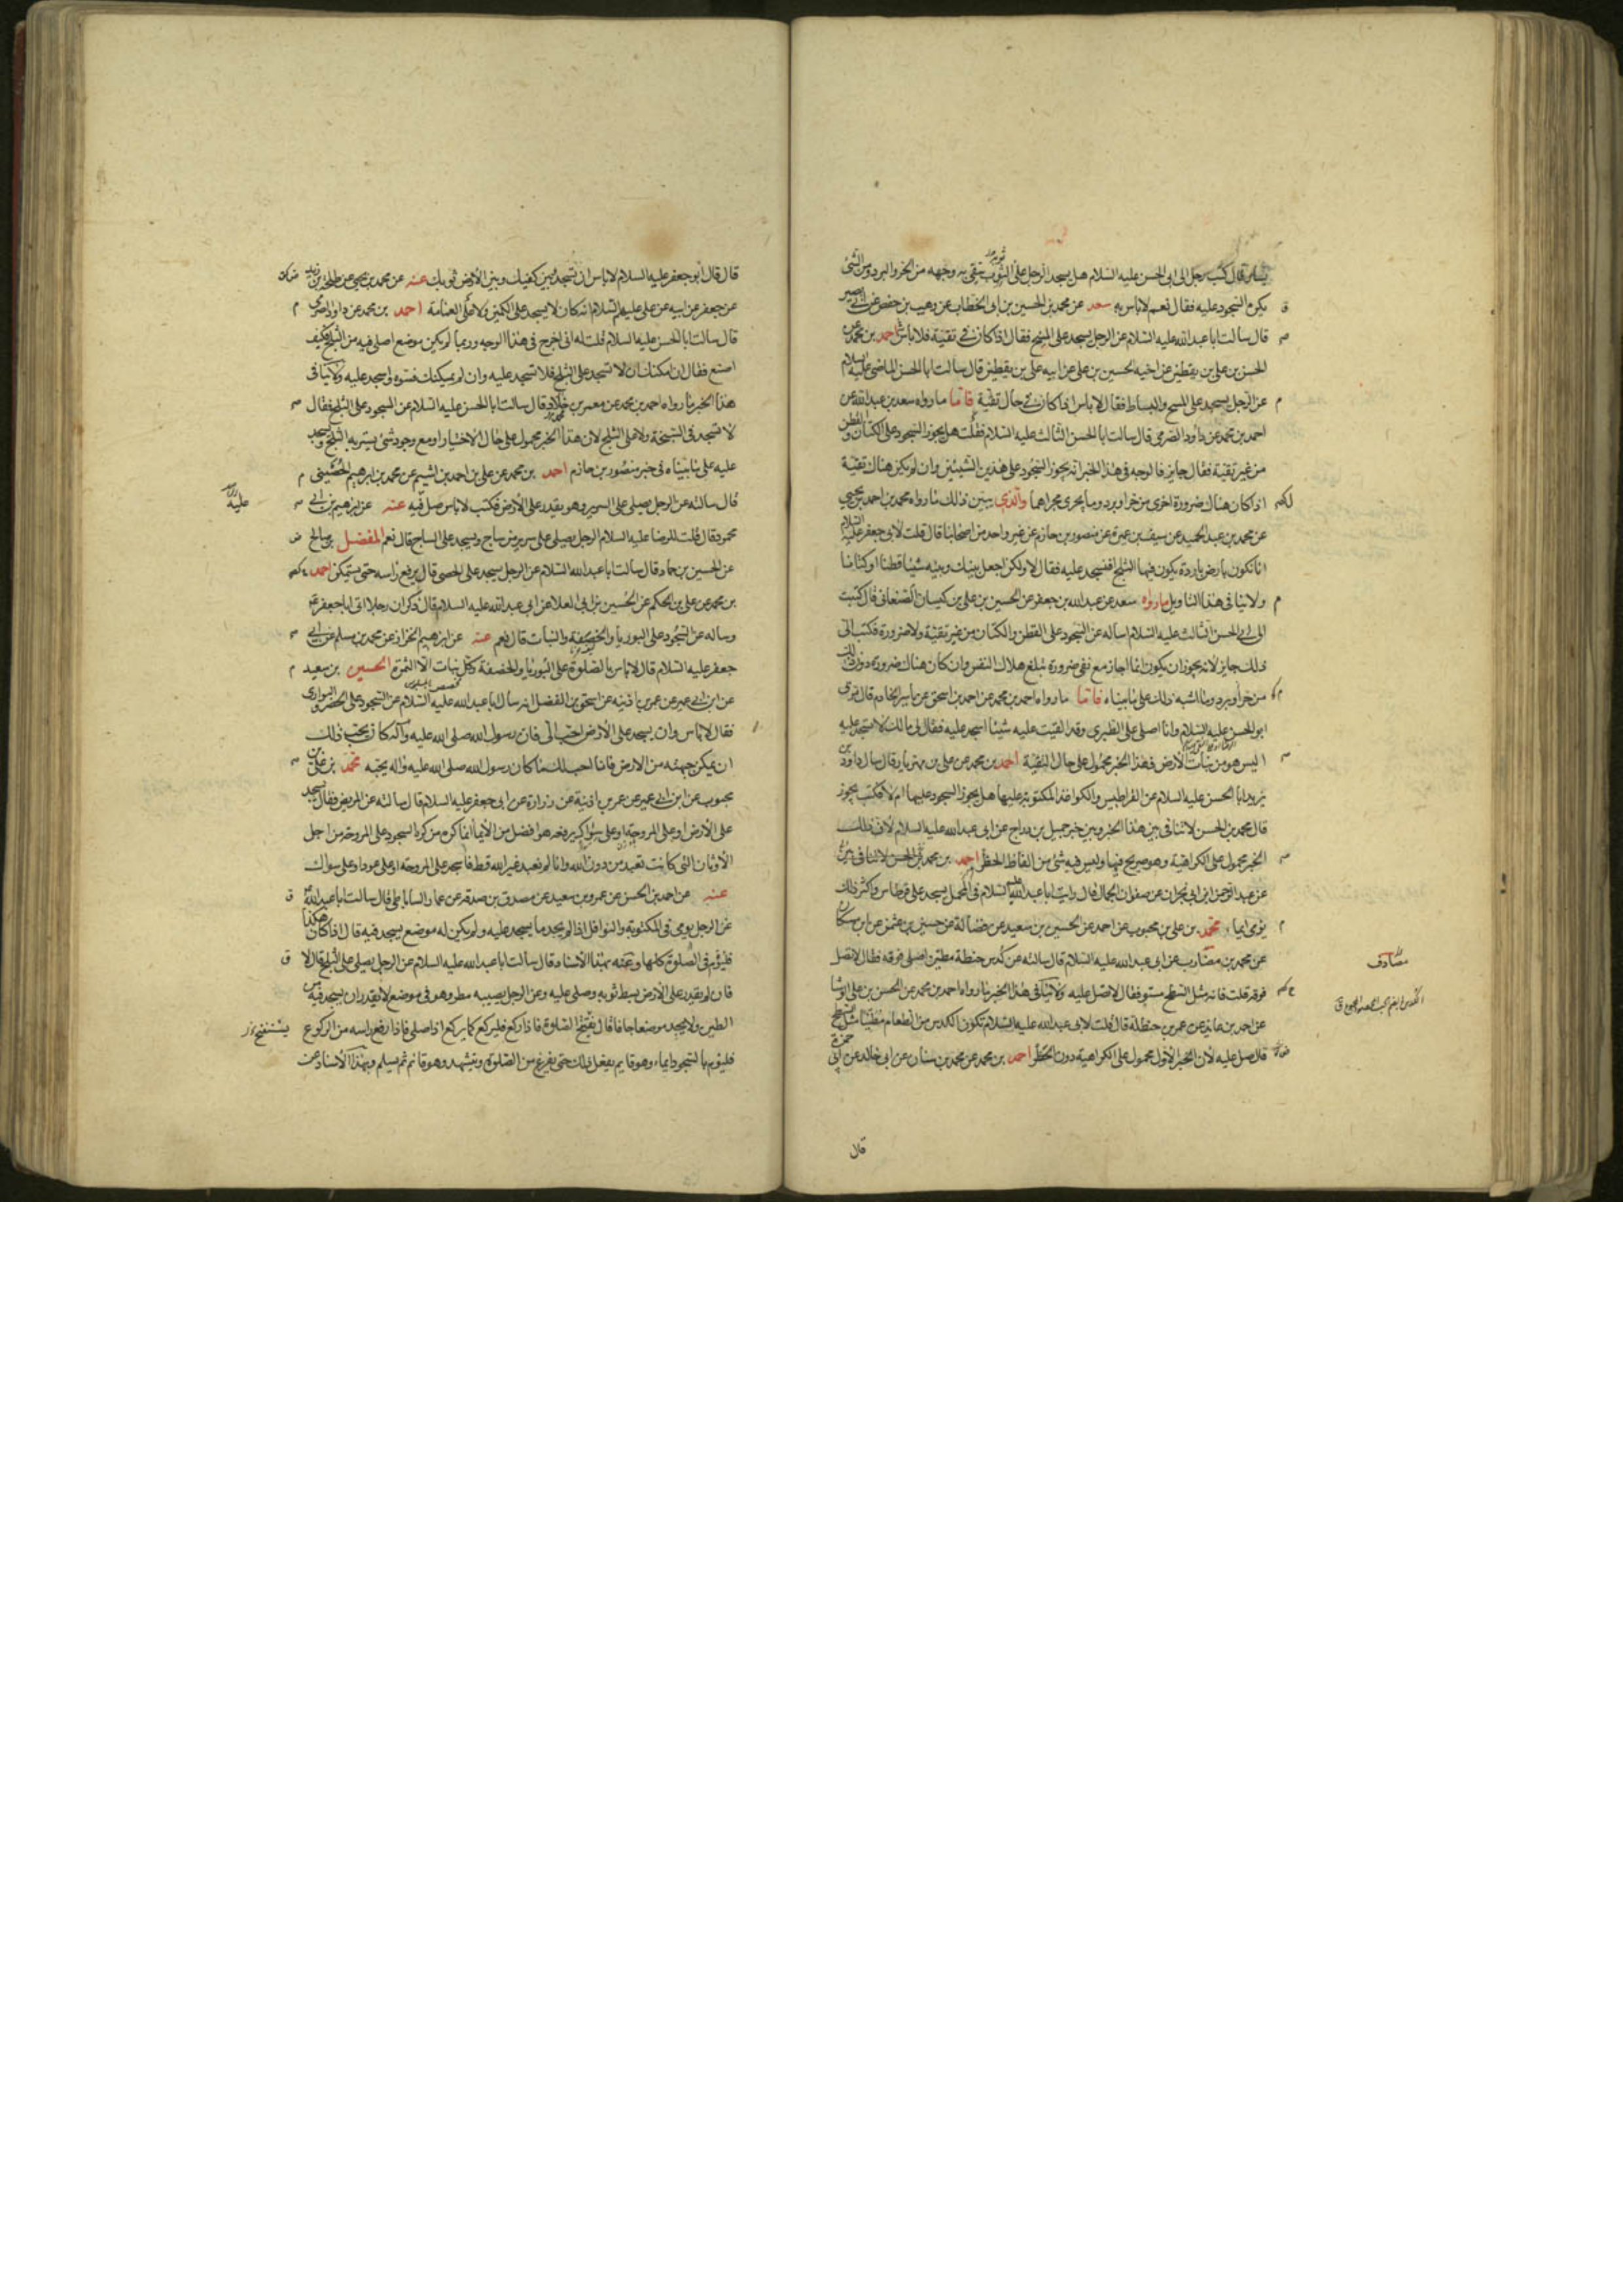 يسار قال كتب رجل الى ابى الحسن عليه السلام هل يسجد الرجل على الثوب يتقى به وجهه من الحر والبرد ومن الشئ
يكره السجود عليه فقال نعم لاباس به سعد عن محمد بن الحسين بن ابى الخطاب عن وهيب بن حفص عن ابى بصير
قال سالت ابا عبد الله عليه السلام عن الرجل يسجد على المسح فقال اذا كان فى تقية فلا باس احمد بن محمد عن
الحسن بن على بن يقطين عن اخيه الحسين بن على عن ابيه على بن يقطين قال سالت ابا الحسن الماضى عليه السلام
عن الرجل يسجد على المسح والبساط فقال لا باس اذا كان فى حال تقية فاما ما رواه سعد بن عبد الله عن
احمد بن محمد عن داود الصرمى قال سالت ابا الحسن الثالث عليه السلام فقلت هل يجوز السجود على الكتان والقطن
من غير تقية فقال جايز فالوجه فى هذا الخبر انه يجوز السجود على هذين الشيئين وان لم يكن هناك تقية
اذا كان هناك ضرورة اخرى من حر او برد وما يجرى مجراهما والذى يبين ذلك ما رواه محمد بن احمد بن يحيى
عن محمد بن عبد الحميد عن سيف بن عميرة عن منصور بن حازم عن غير واحد من اصحابنا قال قلت لابى جعفر عليه السلام
انا نكون بارض باردة يكون فيها الثلج افنسجد عليه فقال لا ولكن اجعل بينك وبينه شيئا قطنا او كتانا
ولا ينافى هذا التاويل ما رواه سعد عن عبد الله بن جعفر عن الحسين بن على بن كيسان الصنعانى قال كتبت
الى ابى الحسن الثالث عليه السلام اساله عن السجود على القطن والكتان من غير تقية ولا ضرورة فكتب الى
ذلك جايز لانه يجوز ان يكون انما اجاز مع نفى ضرورة تبلغ هلاك النفس وان كان هناك ضرورة دون ذلك
من حر او برد وما اشبه ذلك على ما بيناه فاما ما رواه احمد بن محمد عن احمد بن اسحق عن ياسر الخادم قال مر بى
ابو الحسن عليه السلام وانا اصلى على الطبرى وقد القيت عليه شيئا اسجد عليه فقال لى مالك لا تسجد عليه
اليس هو من نبات الارض فهذا الخبر محمول على حال التقية احمد بن محمد عن على بن مهزيار قال سال داود
بن يزيد ابا الحسن عليه السلام عن القراطيس والكواغذ المكتوبة عليها هل يجوز السجود عليها ام لا فكتب يجوز
قال محمد بن الحسن لا تنافى بين هذا الخبر وبين خبر جميل بن دراج عن ابى عبد الله عليه السلام لان ذلك
الخبر محمول على الكراهية وهو صريح فيها وليس فيه شئ من الفاظ الحظر احمد بن محمد
عن عبد الرحمن ابن ابى نجران عن صفوان الجمال قال رايت ابا عبد الله عليه السلام فى المحمل يسجد على قرطاس واكثر ذلك
يومى ايماء محمد بن على بن محبوب عن احمد عن الحسين بن سعيد عن فضالة عن حسين بن عثمن عن ابن مسكان
عن محمد بن مضارب عن ابى عبد الله عليه السلام قال سالته عن كدس حنطة مطين اصلى فوقه فقال لا تصل
فوقه قلت فانه مثل السطح مستو فقال لا تصل عليه ولا ينافى هذا الخبر ما رواه احمد بن محمد عن الحسن بن على الوشا
عن احمد بن عايذ عن عمر بن حنظلة قال قلت لابى عبد الله عليه السلام تكون الكدس من الطعام مطينا مثل السطح
قال صل عليه لان الخبر الاول محمول على الكراهية دون الحظر احمد بن محمد عن محمد بن سنان عن ابى خالد عن ابى حمزة
مصادف
قال
قال قال ابو جعفر عليه السلام لا باس ان تسجد وبين كفيك وبين الارض ثوبك عنه عن محمد بن يحيى عن طلحة بن زيد
عن جعفر عن ابيه عن على عليهم السلام انه كان لا يسجد على الكمين ولا على العمامة احمد بن محمد عن داود الصرمى
قال سالت ابا الحسن عليه السلام قلت له انى اخرج فى هذا الوجه وربما لم يكن موضع اصلى فيه من الثلج فكيف
اصنع فقال ان امكنك ان لا تسجد على الثلج فلا تسجد عليه وان لم يمكنك فسوه واسجد عليه ولا ينافى
هذا الخبر ما رواه احمد بن محمد عن معمر بن خلاد قال سالت ابا الحسن عليه السلام عن السجود على الثلج فقال
لا تسجد فى السبخة ولا على الثلج لان هذا الخبر محمول على حال الاختيار او مع وجود شئ يستر به الثلج ويسجد
عليه على ما بيناه فى خبر منصور بن حازم احمد بن محمد عن على بن احمد بن اشيم عن محمد بن ابرهيم الحضينى
قال سالته عن الرجل يصلى على السرير وهو يقدر على الارض فكتب لا باس صل فيه عنه عن ابرهيم بن ابى
محمود قال قلت للرضا عليه السلام الرجل يصلى على سرير من ساج ويسجد على الساج قال نعم المفضل بن صالح
عن الحسين بن حماد قال سالت ابا عبد الله عليه السلام عن الرجل يسجد على الحصى قال يرفع راسه حتى يستمكن احمد
بن محمد عن على بن الحكم عن الحسين بن ابى العلا عن ابى عبد الله عليه السلام قال ذكر ان رجلا اتى ابا جعفر
وساله عن السجود على البوريا والخصفة والنبات قال نعم عنه عن ابرهيم الخزاز عن محمد بن مسلم عن ابى
جعفر عليه السلام قال لا باس بالصلوة على البوريا والخصفة وكل نبات الا الثمرة الحسين بن سعيد
عن ابن ابى عمير عن عمر بن اذينه عن اسحق بن الفضل انه سال ابا عبد الله عليه السلام عن السجود على الحصر والبوارى
فقال لا باس وان يسجد على الارض احب الى فان رسول الله صلى الله عليه وآله كان يحب ذلك
ان يمكن جبهته من الارض فانا احب لك ما كان رسول الله صلى الله عليه واله يحبه محمد بن على بن
محبوب عن ابن ابى عمير عن عمر بن اذينة عن زرارة عن ابى جعفر عليه السلام قال سالته عن المريض فقال يسجد
على الارض او على المروحة او على سواك يرفعه هو افضل من الايماء انما كره من كره السجود على المروحة من اجل
الاوثان التى كانت تعبد من دون الله وانا لم نعبد غير الله قط فاسجد على المروحه او على عود او على سواك
عنه عن احمد بن الحسن عن عمرو بن سعيد عن مصدق بن صدقه عن عمار الساباطى قال سالت ابا عبد الله
عن الرجل يومى فى المكتوبة والنوافل اذا لم يجد ما يسجد عليه ولم يكن له موضع يسجد فيه قال اذا كان هكذا
فليؤم فى الصلوة كلها وعنه بهذا الاسناد قال سالت ابا عبد الله عليه السلام عن الرجل يصلى على الثلج قال لا
فان لم يقدر على الارض بسط ثوبه وصلى عليه وعن الرجل يصيبه مطر وهو فى موضع لا يقدر ان يسجد فيه من
الطين ولا يجد موضعا جافا قال يفتتح الصلوة فاذا ركع فليركع كما يركع اذا صلى فاذا رفع راسه من الركوع
فليؤم بالسجود ايماء وهو قايم يفعل ذلك حتى يفرغ من الصلوة ويتشهد وهو قائم ثم يسلم وبهذا الاسناد عن
عليه